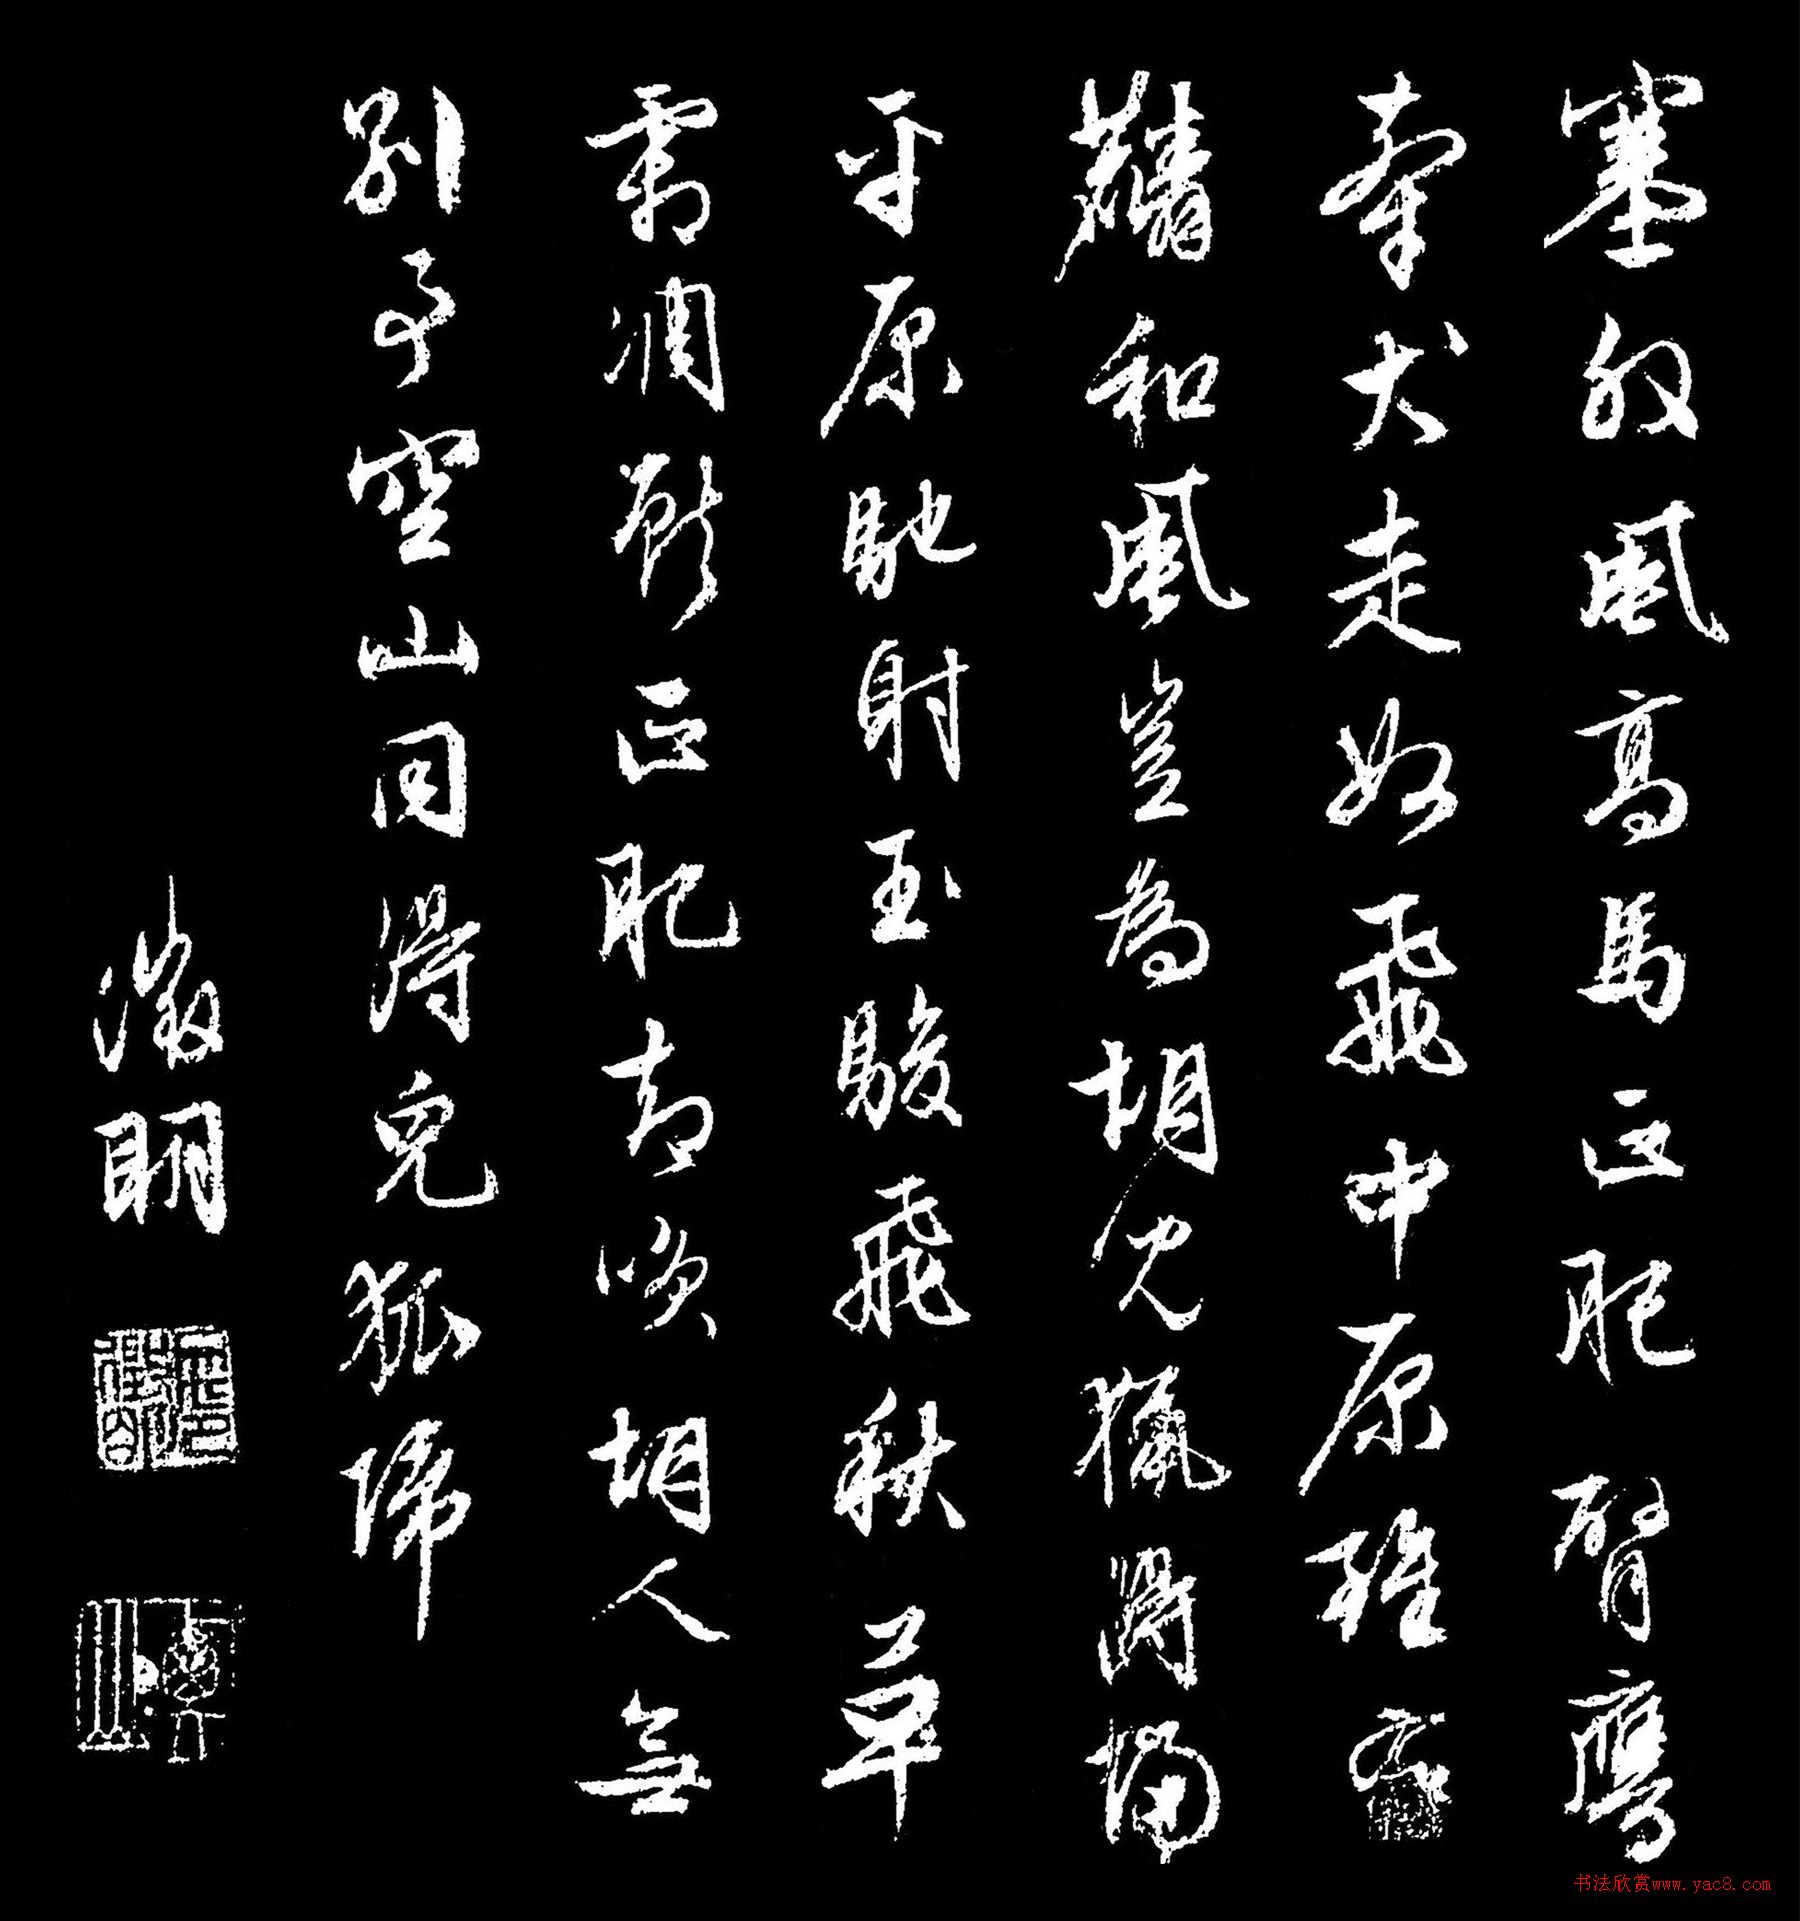 塞風高馬正肥臂鷹
牽犬走如飛中原雖
和風豈為胡兒獵
平原馳射玉駿飛秋草
霜凋獸正肥却咲胡人無
別事空山同得兔狐歸
徵明
停雲
书法欣赏www.yac8.com